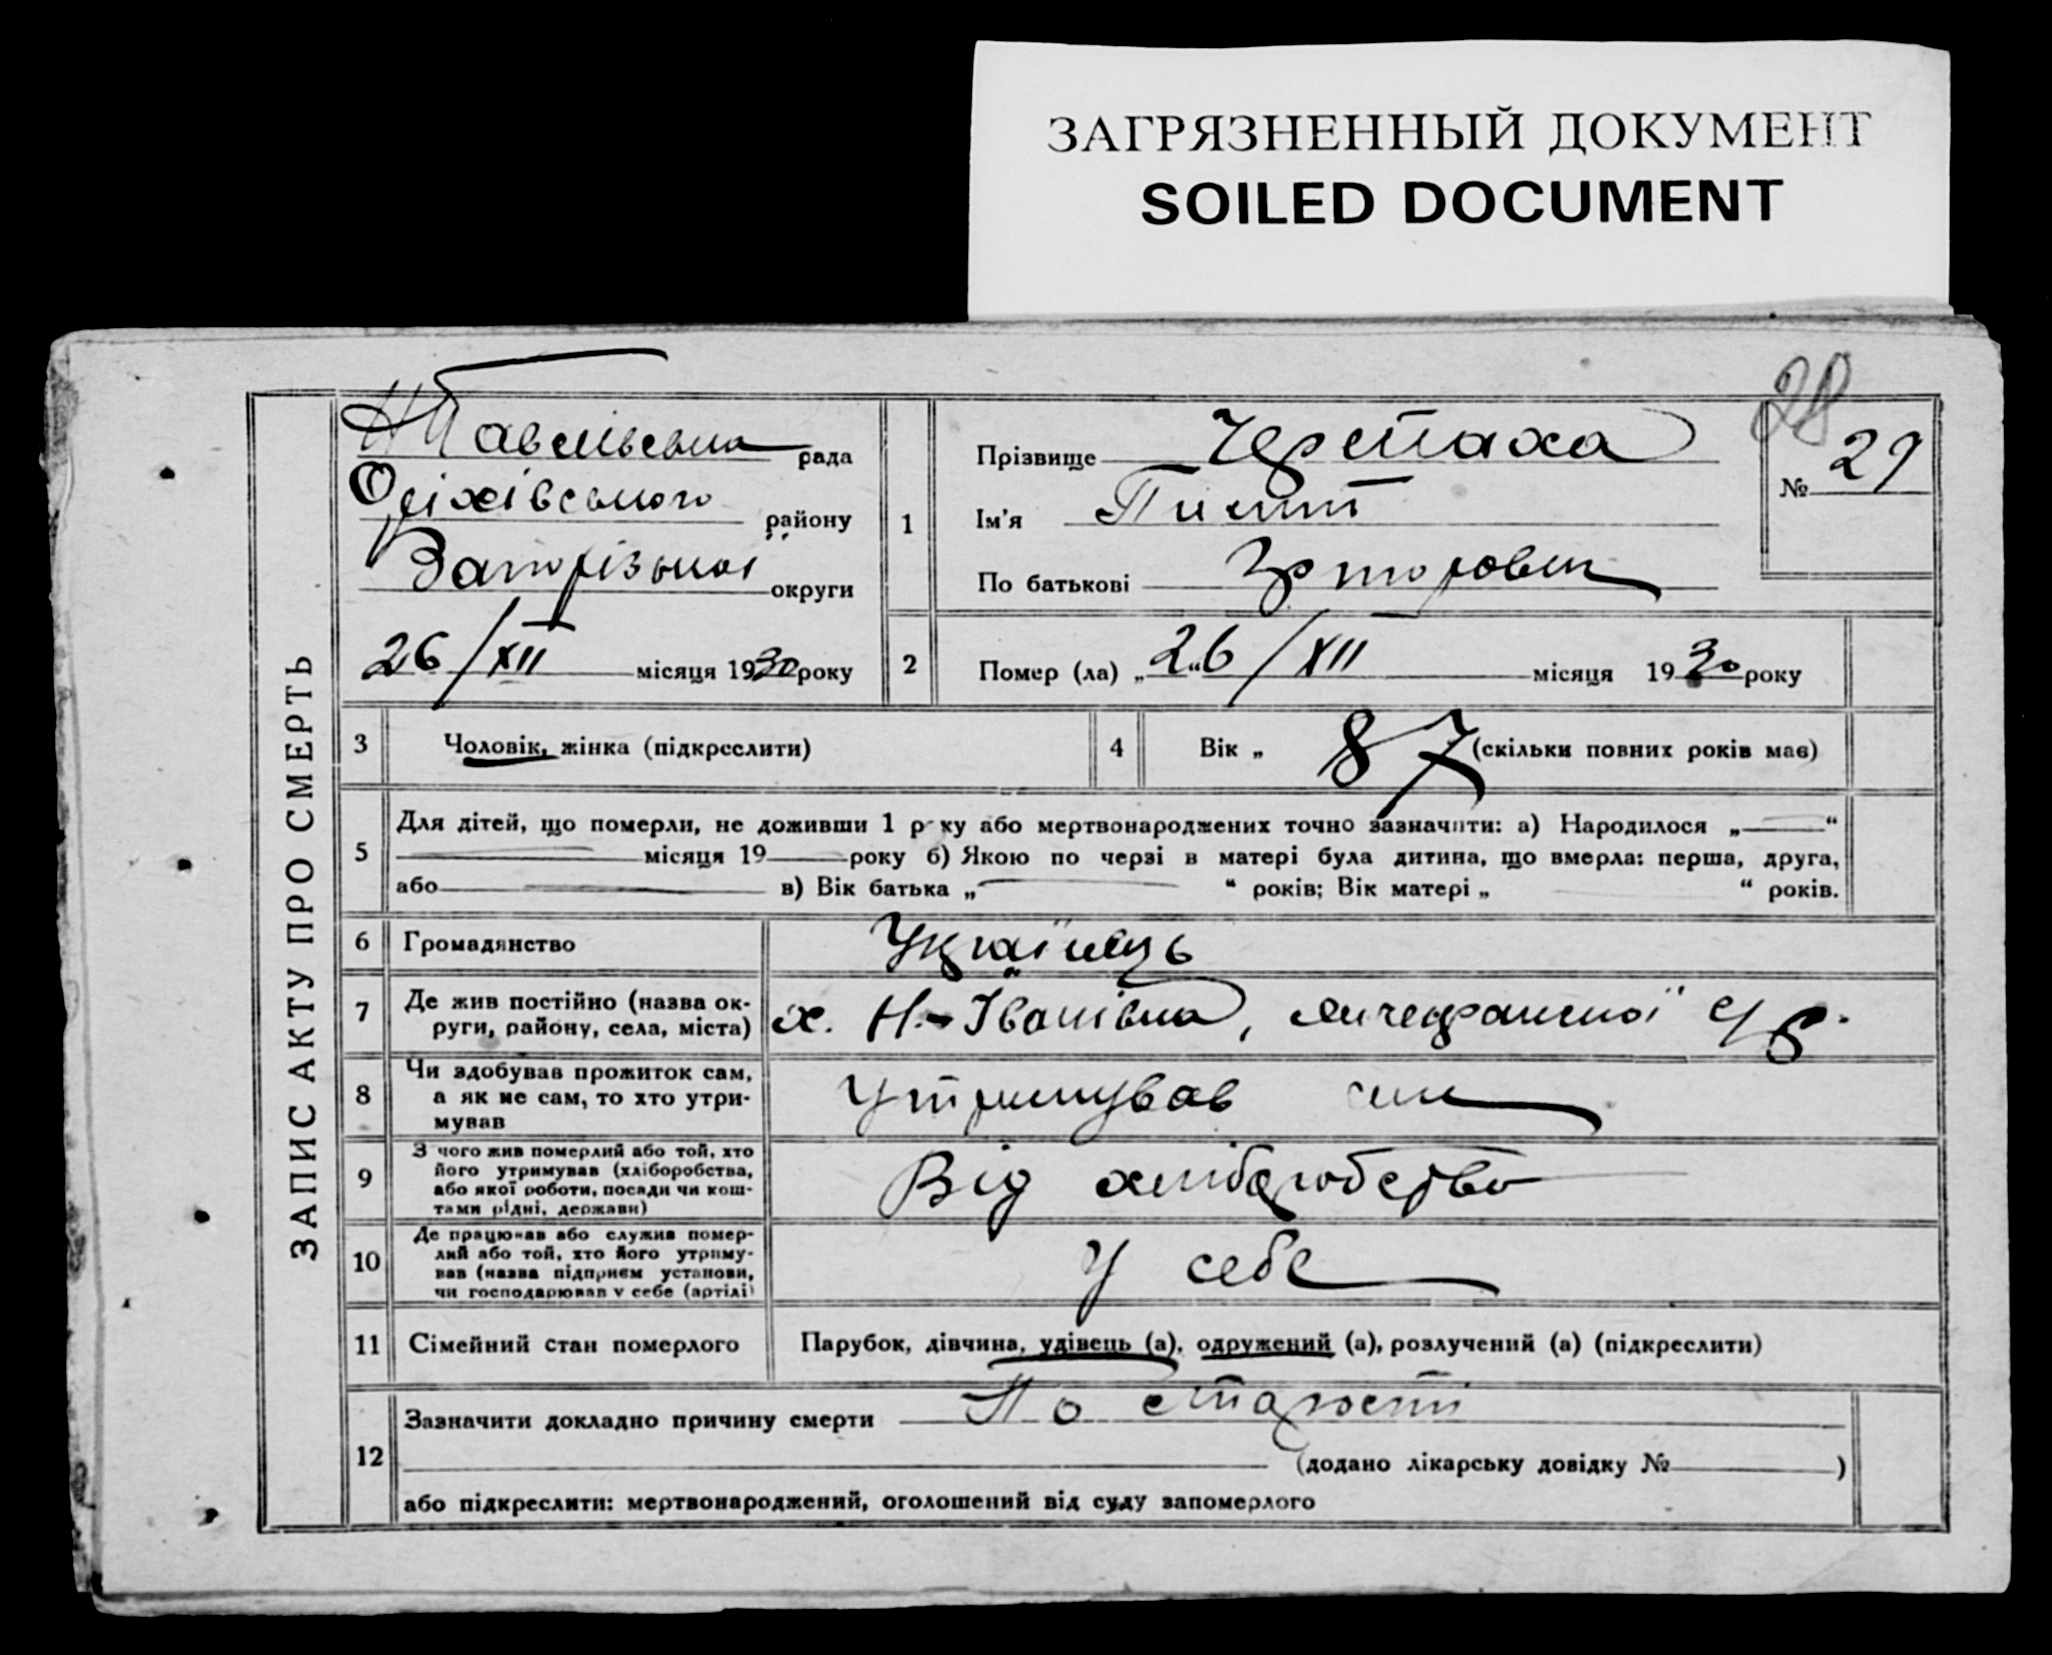 ЗАГРЯЗНЕННЫЙ ДОКУМЕНТ
SOILED DOCUMENT
28
ЗАПИС АКТУ ПРО СМЕРТЬ
рада
Оріхівського району
Запорізької округи
26/XII місяця 1930 року
1
Прізвище Черепаха
Ім'я
По батькові
№ 29
2
Помер (ла) „26“/XII місяця 1930 року
3 Чоловік, жінка (підкреслити)
4 Вік „ 87 (скільки повних років має)
5 Для дітей, що померли, не доживши 1 року або мертвонароджених точно зазначити: а) Народилося „ “
місяця 19 року б) Якою по черзі в матері була дитина, що вмерла: перша, друга,
або в) Вік батька „ “ років; Вік матері „ “ років.
6 Громадянство Українець
7 Де жив постійно (назва ок-
руги, району, села, міста) х. Н.-Іванівка, с/р.
8 Чи здобував прожиток сам,
а як не сам, то хто утри-
мував утримував син
9 З чого жив померлий або той, хто
його утримував (хліборобства,
або якої роботи, посади чи кош-
тами рідні, держави) Від хліборобства
10 Де працював або служив помер-
лий або той, хто його утриму-
вав (назва підприєм установи,
чи господарював у себе (артілі) У себе
11 Сімейний стан померлого Парубок, дівчина, удівець (а), одружений (а), розлучений (а) (підкреслити)
12 Зазначити докладно причину смерти По старости
(додано лікарську довідку № )
або підкреслити: мертвонароджений, оголошений від суду запомерлого